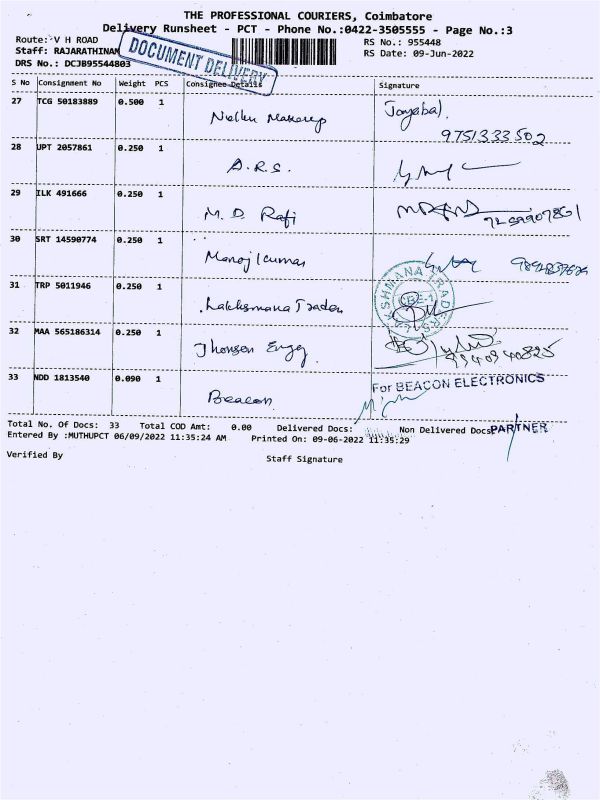 THE PROFESSIONAL COURIERS, Coimbatore
Delivery Runsheet - PCT - Phone No.:0422-3505555 - Page No.:3
Route: V H ROAD
RS No.: 955448
Staff: RAJARATHINAM
RS Date: 09-Jun-2022
DRS No.: DCJB95544803
DOCUMENT DELIVERY
S No Consignment No Weight PCS Consignee Details Signature
27 TCG 50183889 0.500 1 Nellu Makeup Jayabal.
9751333502
28 UPT 2057861 0.250 1 A.R.S.
29 ILK 491666 0.250 1 M. D. Rafi
30 SRT 14590774 0.250 1 Manoj Kumar
31 TRP 5011946 0.250 1 Lakhsmana Trader
LAKSHMANA TRADERS
CBE-1
32 MAA 565186314 0.250 1 Jhonson Engg
33 NDD 1813540 0.090 1 Beacon
For BEACON ELECTRONICS
PARTNER
Total No. Of Docs: 33 Total COD Amt: 0.00 Delivered Docs: Non Delivered Docs:
Entered By :MUTHUPCT 06/09/2022 11:35:24 AM Printed On: 09-06-2022 11:35:29
Verified By Staff Signature